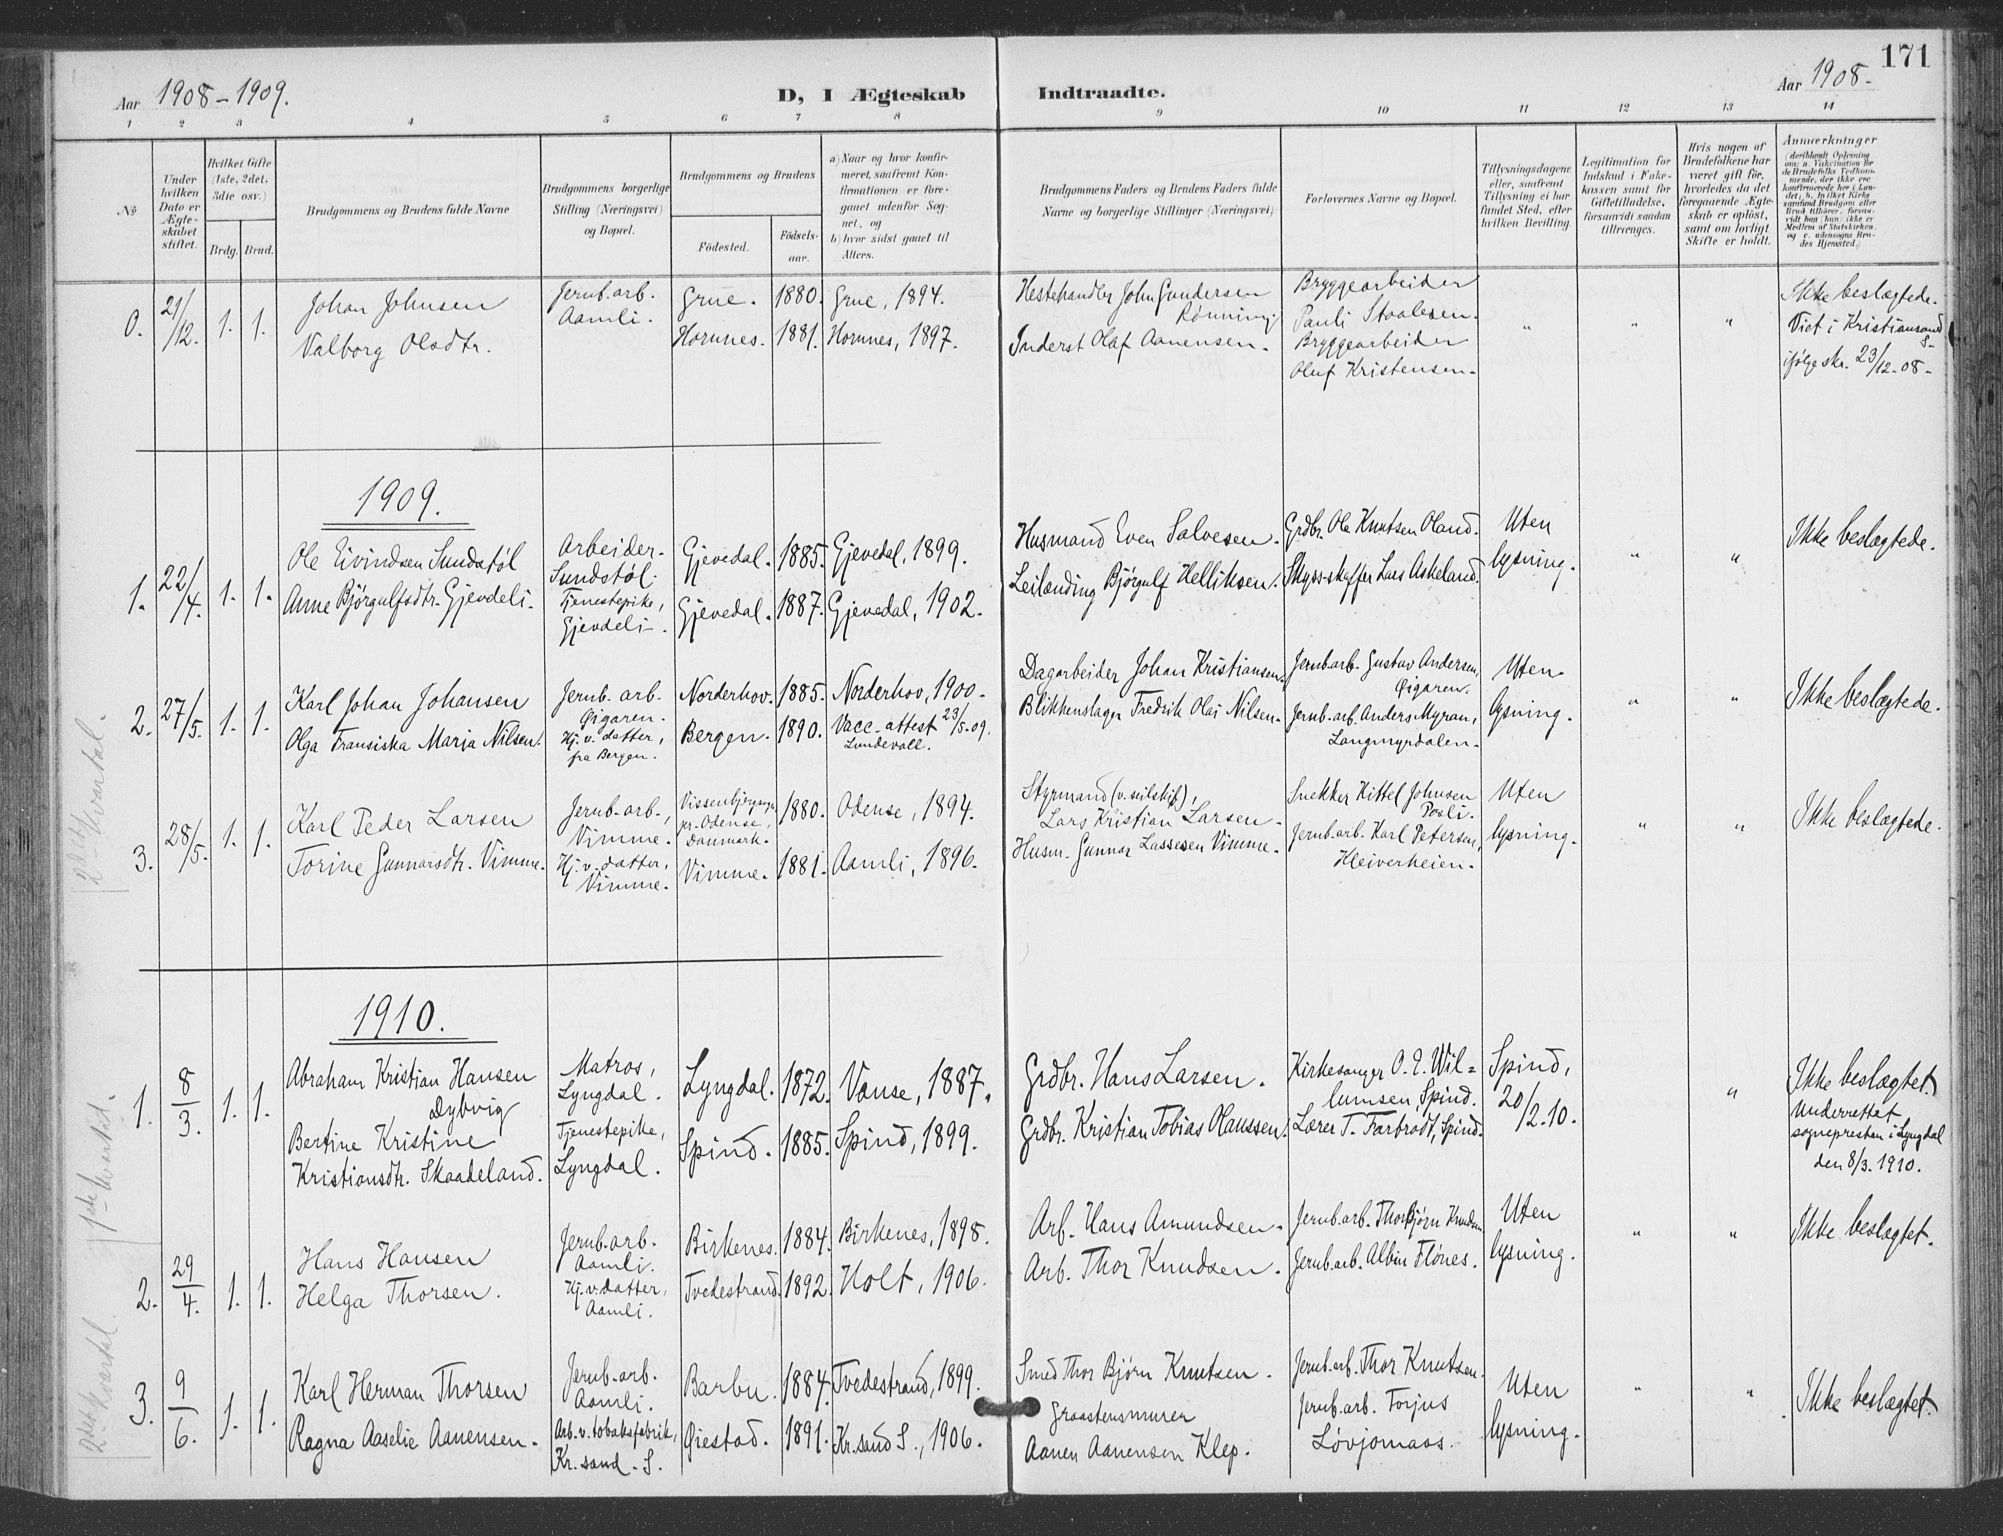 171
Aar 1908-1909.
D, I Ægteskab Indtraadte.
Aar 1908-
1 2 3 4 5 6 7 8 9 10 11 12 13 14
No
Under hvilken Dato er Ægteskabet stiftet.
Hvilket Gifte (1ste, 2det, 3die osv.)
Brdg. Brud.
Brudgommens og Brudens fulde Navne
Brudgommens borgerlige Stilling (Næringsvei) og Bopæl.
Brudgommens og Brudens
Fødested.
Fødselsaar.
a) Naar og hvor konfirmeret, saafremt Konfirmationen er foregaaet udenfor Sognet, og
b) hvor sidst gaaet til Alters.
Brudgommens Faders og Brudens Faders fulde Navne og borgerlige Stillinger (Næringsvei)
Forlovernes Navne og Bopæl.
Tillysningsdagene eller, saafremt Tillysning ei har fundet Sted, efter hvilken Bevilling.
Legitimation for Indskud i Enkekassen samt for Giftetilladelse, forsaavidt saadan tiltrænges.
Hvis nogen af Brudefolkene har været gift før, hvorledes da det foregaaende Ægteskab er opløst, samt om lovligt Skifte er holdt.
Anmerkninger
0. 21/12. 1. 1.
Johan Johnsen
Valborg Olsdtr.
Jernb. arb.
Aamli.
Grue. 1880. Grue, 1894.
Hornnes. 1881. Hornnes, 1897.
Hestehandler John Gundersen
Rønning
Inderst Olaf Aanensen.
Bryggearbeider
Pauli Staalesen.
Bryggearbeider
Oluf Kristensen.
" " "
Ikke beslægtede.
Viet i Kristiansand
S-
ifølge skr. 23/12-08-
1909.
1. 22/4. 1. 1.
Ole Eivindsen Sundstøl
Anne Bjørgulfsdtr. Gjevdeli.
Arbeider.
Sundstøl.
Tjenestepike,
Gjevdeli.
Gjevedal. 1885. Gjevedal, 1899.
Gjevedal. 1887. Gjevedal, 1902.
Husmand Even Salvesen.
Leilænding Bjørgulf Helliksen.
Grdbr. Ole Knutsen Oland.
Skyss-skaffer Lars Askeland.
Uten
lysning.
" "
Ikke beslægtede.
2det Kvartal.
2. 27/5. 1. 1.
Karl Johan Johansen
Olga Fransiska Marja Nilsen.
Jernb. arb.
Øigaren.
Hj. v. datter,
fra Bergen.
Norderhov. 1885. Norderhov, 1900.
Bergen. 1890. Vacc. attest 23/5-09.
Lundevall.
Dagarbeider Johan Kristiansen.
Blikkenslager Fredrik Olai Nilsen.
Jernb. arb. Gustav Andersen,
Øigaren.
Jernb. arb. Anders Myran,
Langmyrdalen.
Uten
lysning.
" "
Ikke beslægtede.
3. 28/5. 1. 1.
Karl Peder Larsen
Torine Gunnarsdtr. Vimme.
Jernb. arb.,
Vimme.
Hj. v. datter,
Vimme.
pr. Odense,
Danmark.
1880. Odense, 1894.
Vimme. 1881. Aamli, 1896.
Styrmand (v. seilskif),
Lars Kristian Larsen.
Husm. Gunnar Lassesen Vimme.
Snekker Kittel Johnsen
Posli.
Jernb. arb. Karl Petersen,
Kleiverheien.
Uten
lysning.
" "
Ikke beslægtede.
1910.
1ste Kvartal.
1. 8/3. 1. 1.
Abraham Kristian Hansen
Dybvig
Bertine Kristine
Kristiansdtr. Skaadeland.
Matros,
Lyngdal.
Tjenestepike,
Lyngdal.
Lyngdal. 1872. Vanse, 1887.
Spind. 1885. Spind, 1899.
Grdbr. Hans Larsen.
Grdbr. Kristian Tobias Olaussen.
Kirkesanger O. E. Wil=
lumsen, Spind.
Lærer T. Farbrodt, Spind.
Spind,
20/2.10.
"
Ikke beslægtet.
Underrettet
sognepresten i Lyngdal
den 8/3. 1910.
2det Kvartal.
2. 29/4. 1. 1.
Hans Hansen
Helga Thorsen.
Jernb. arb.
Aamli.
Hj. v. datter,
Aamli.
Birkenes. 1884. Birkenes, 1898.
Tvedestrand. 1892. Holt, 1906.
Arb. Hans Amundsen.
Arb. Thor Knudsen.
Jernb. arb. Thorbjørn Knudsen
Jernb. arb. Albin Flønes.
Uten
lysning.
" "
Ikke beslægtet.
3. 9/6. 1. 1.
Karl Herman Thorsen
Ragna Aaselie Aanensen.
Jernb. arb.
Aamli.
Arb. v. tobaksfabrik,
Kr. sand. S.
Barbu. 1884. Tvedestrand, 1899.
Øiestad. 1891. Kr. sand S., 1906.
Smed Thor Bjørn Knutsen.
Graastensmurer
Aanen Aanensen Klep.
Jernb. arb. Thor Knutsen.
Jernb. arb. Torjus
Løvjomaas.
Uten
lysning.
" "
Ikke beslægtet.